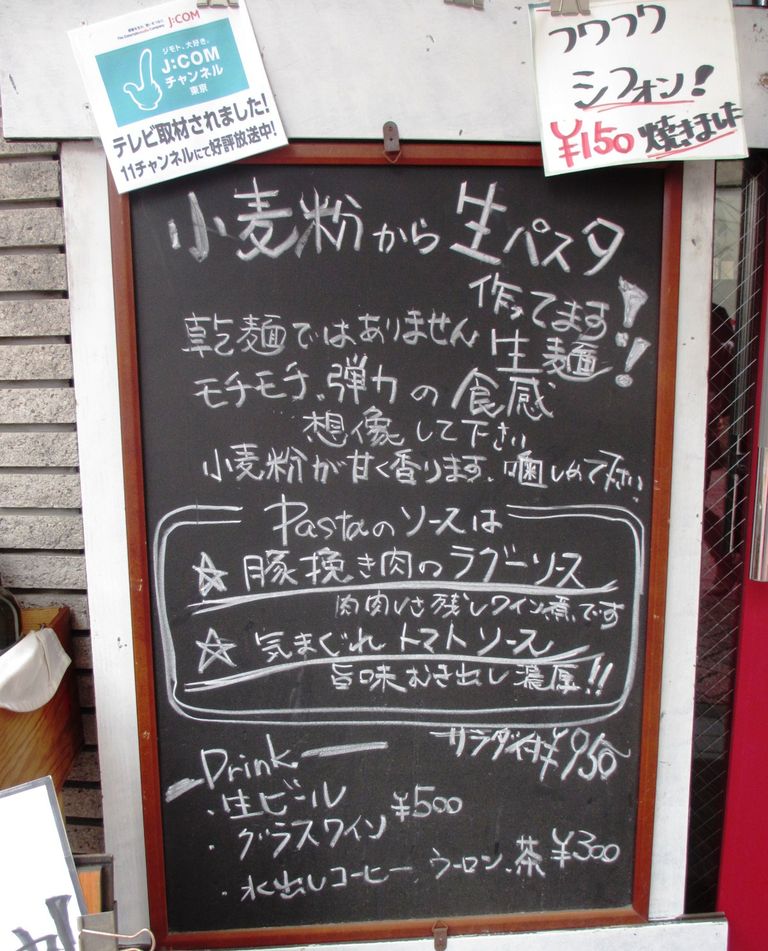 J:COM
ジモト、大好き。
J:COM
チャンネル
東京
テレビ取材されました!
11チャンネルにて好評放送中!
フワフワ
シフォン!
¥150 焼きました
小麦粉から生パスタ
作ってます!
乾麺ではありません 生麺!
モチモチ、弾力の食感
想像して下さい
小麦粉が甘く香ります、噛しめて下さい
Pastaのソースは
☆豚挽き肉のラグーソース
肉肉しさ残しワイン煮です
☆気まぐれトマトソース
旨味むき出し濃厚!!
サラダ付¥950
Drink
・生ビール
¥500
・グラスワイン
・水出しコーヒー、ウーロン茶 ¥300